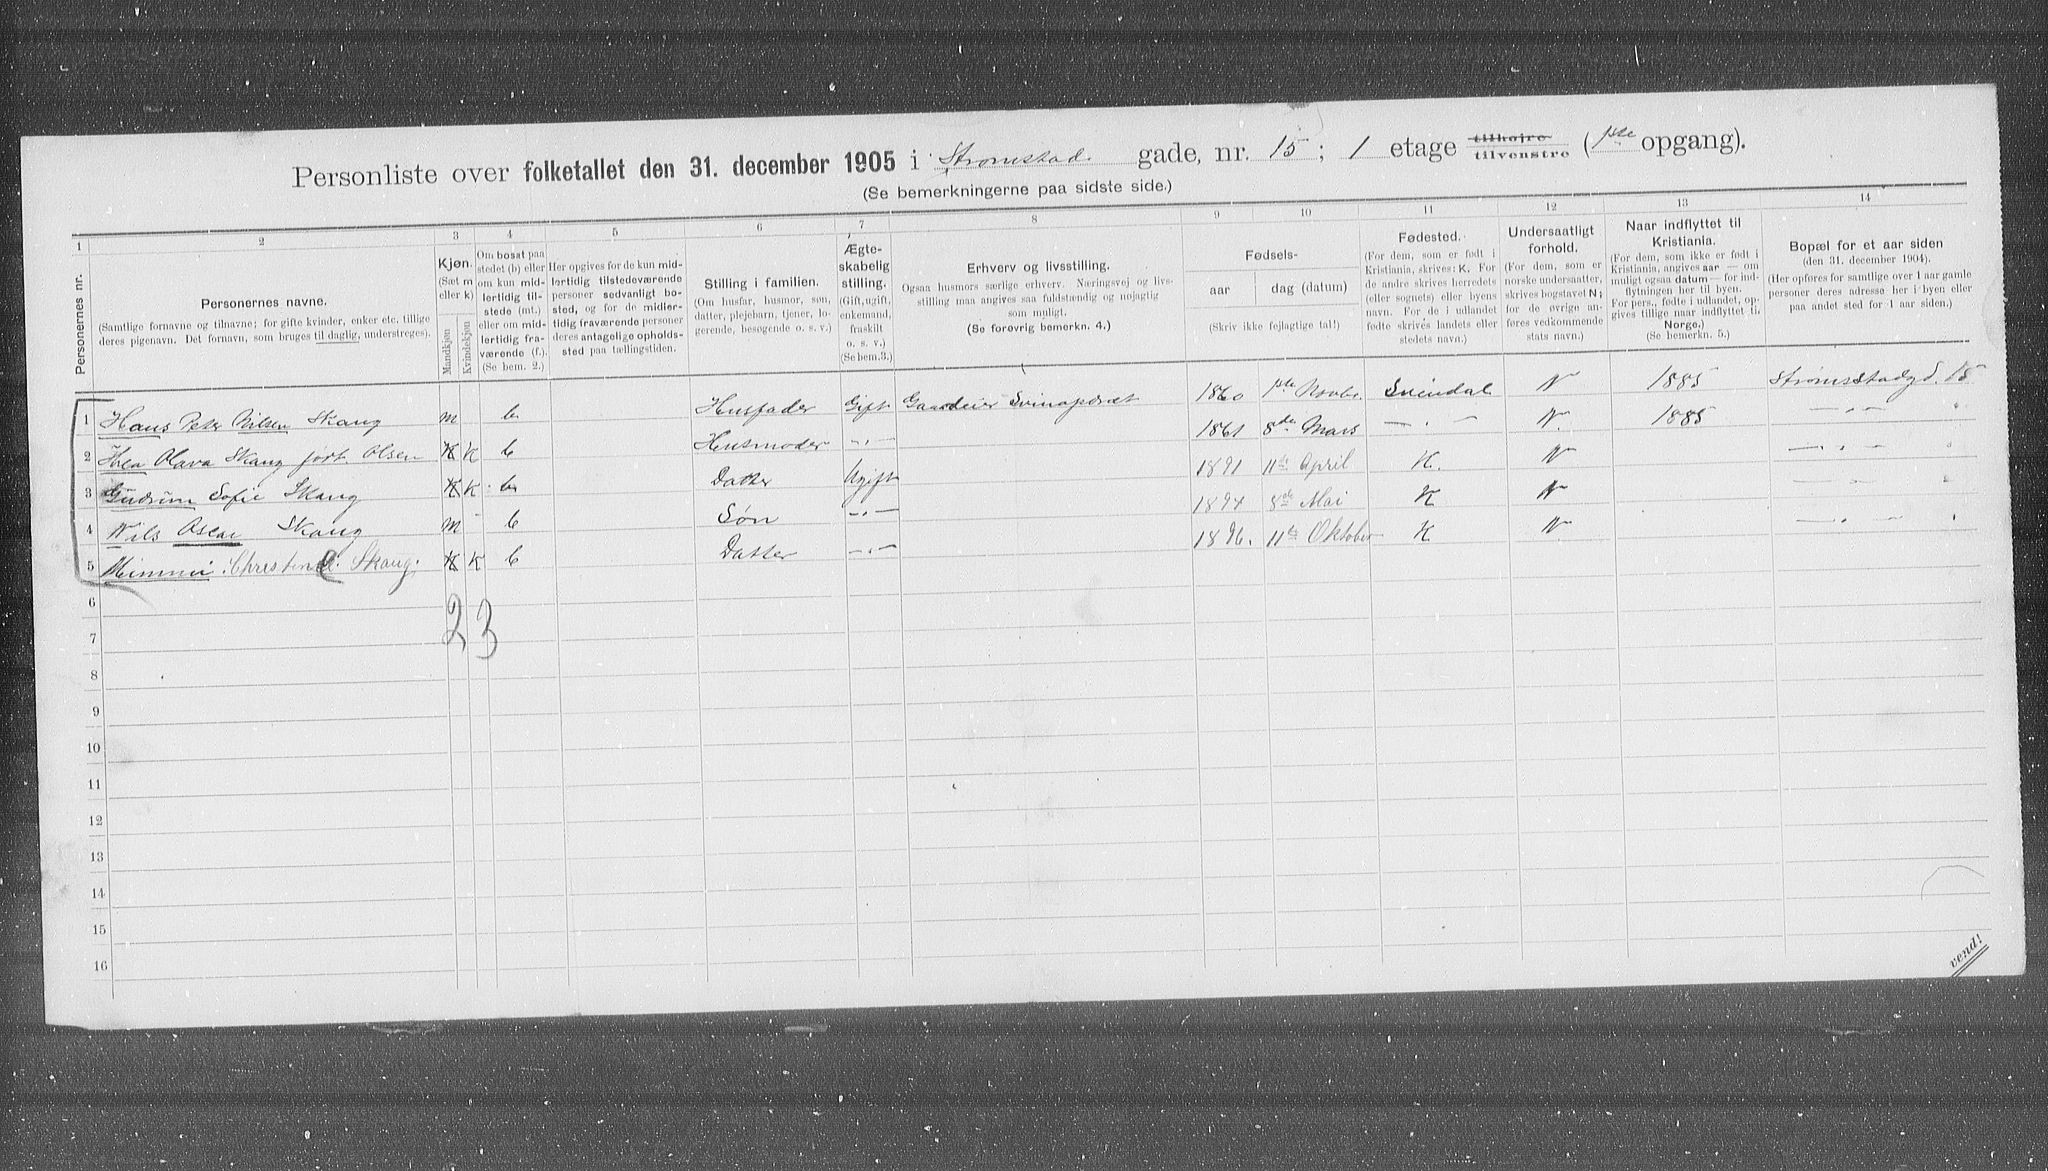 Personliste over folketallet den 31. december 1905 i Strømstad gade, nr. 15; 1 etage tilhøjre tilvenstre (1ste opgang).
(Se bemerkningerne paa sidste side.)
1 2 3 4 5 6 7 8 9 10 11 12 13 14
Personernes nr.
Personernes navne.
(Samtlige fornavne og tilnavne; for gifte kvinder, enker etc. tillige deres pigenavn. Det fornavn, som bruges til daglig, understreges).
Kjøn.
(Sæt m eller k)
Mandkjøn
Kvindekjøn
Om bosat paa stedet (b) eller om kun midlertidig tilstede (mt.) eller om midlertidig fraværende (f.). (Se bem. 2.)
Her opgives for de kun midlertidig tilstedeværende personer sedvanligt bosted, og for de midlertidig fraværende personer deres antagelige opholdssted paa tællingstiden.
Stilling i familien.
(Om husfar, husmor, søn, datter, plejebarn, tjener, logerende, besøgende o. s. v.)
Ægteskabelig stilling.
(Gift, ugift, enkemand, fraskilt o. s. v.)
(Se bem. 3.)
Erhverv og livsstilling.
Ogsaa husmors særlige erhverv. Næringsvej og livsstilling maa angives saa fuldstændig og nøjagtig som muligt.
(Se forøvrig bemerkn. 4.)
Fødsels-
aar
dag (datum)
(Skriv ikke fejlagtige tal!)
Fødested.
(For dem, som er født i Kristiania, skrives: K. For de andre skrives herredets (eller sognets) eller byens navn. For de i udlandet fødte skrives landets eller stedets navn.)
Undersaatligt forhold.
(For dem, som er norske undersaatter, skrives bogstavet N; for de øvrige anføres vedkommende stats navn.)
Naar indflyttet til Kristiania.
(For dem, som ikke er født i Kristiania, angives aar — om muligt ogsaa datum — for indflytningen her til byen. For pers., fødte i udlandet, opgives tillige naar indflyttet til Norge.)
(Se bemerkn. 5.)
Bopæl for et aar siden
(den 31. december 1904).
(Her opføres for samtlige over 1 aar gamle personer deres adresse her i byen eller paa andet sted for 1 aar siden.)
1 Hans Peter Nilsen Skaug m b Husfader Gift Gaardeier 1860 1ste Novbr. Svindal N 1885 Strømsstadgd. 15
2 Thea Olava Skaug født Olsen K K b Husmoder -"- 1861 8de Mars -"- N. 1885 -"-
3 Gudrun Sofie Skaug K K b Datter Ugift 1891 11te April K. N -"-
4 Nils Oscar Skaug m b Søn -"- 1894 8de Mai K N -"-
5 Mimmi Christine Skaug. K K b Datter -"- 1896. 11te Oktober K N. -"-
6 2 3
7
8
9
10
11
12
13
14
15
16
vend!